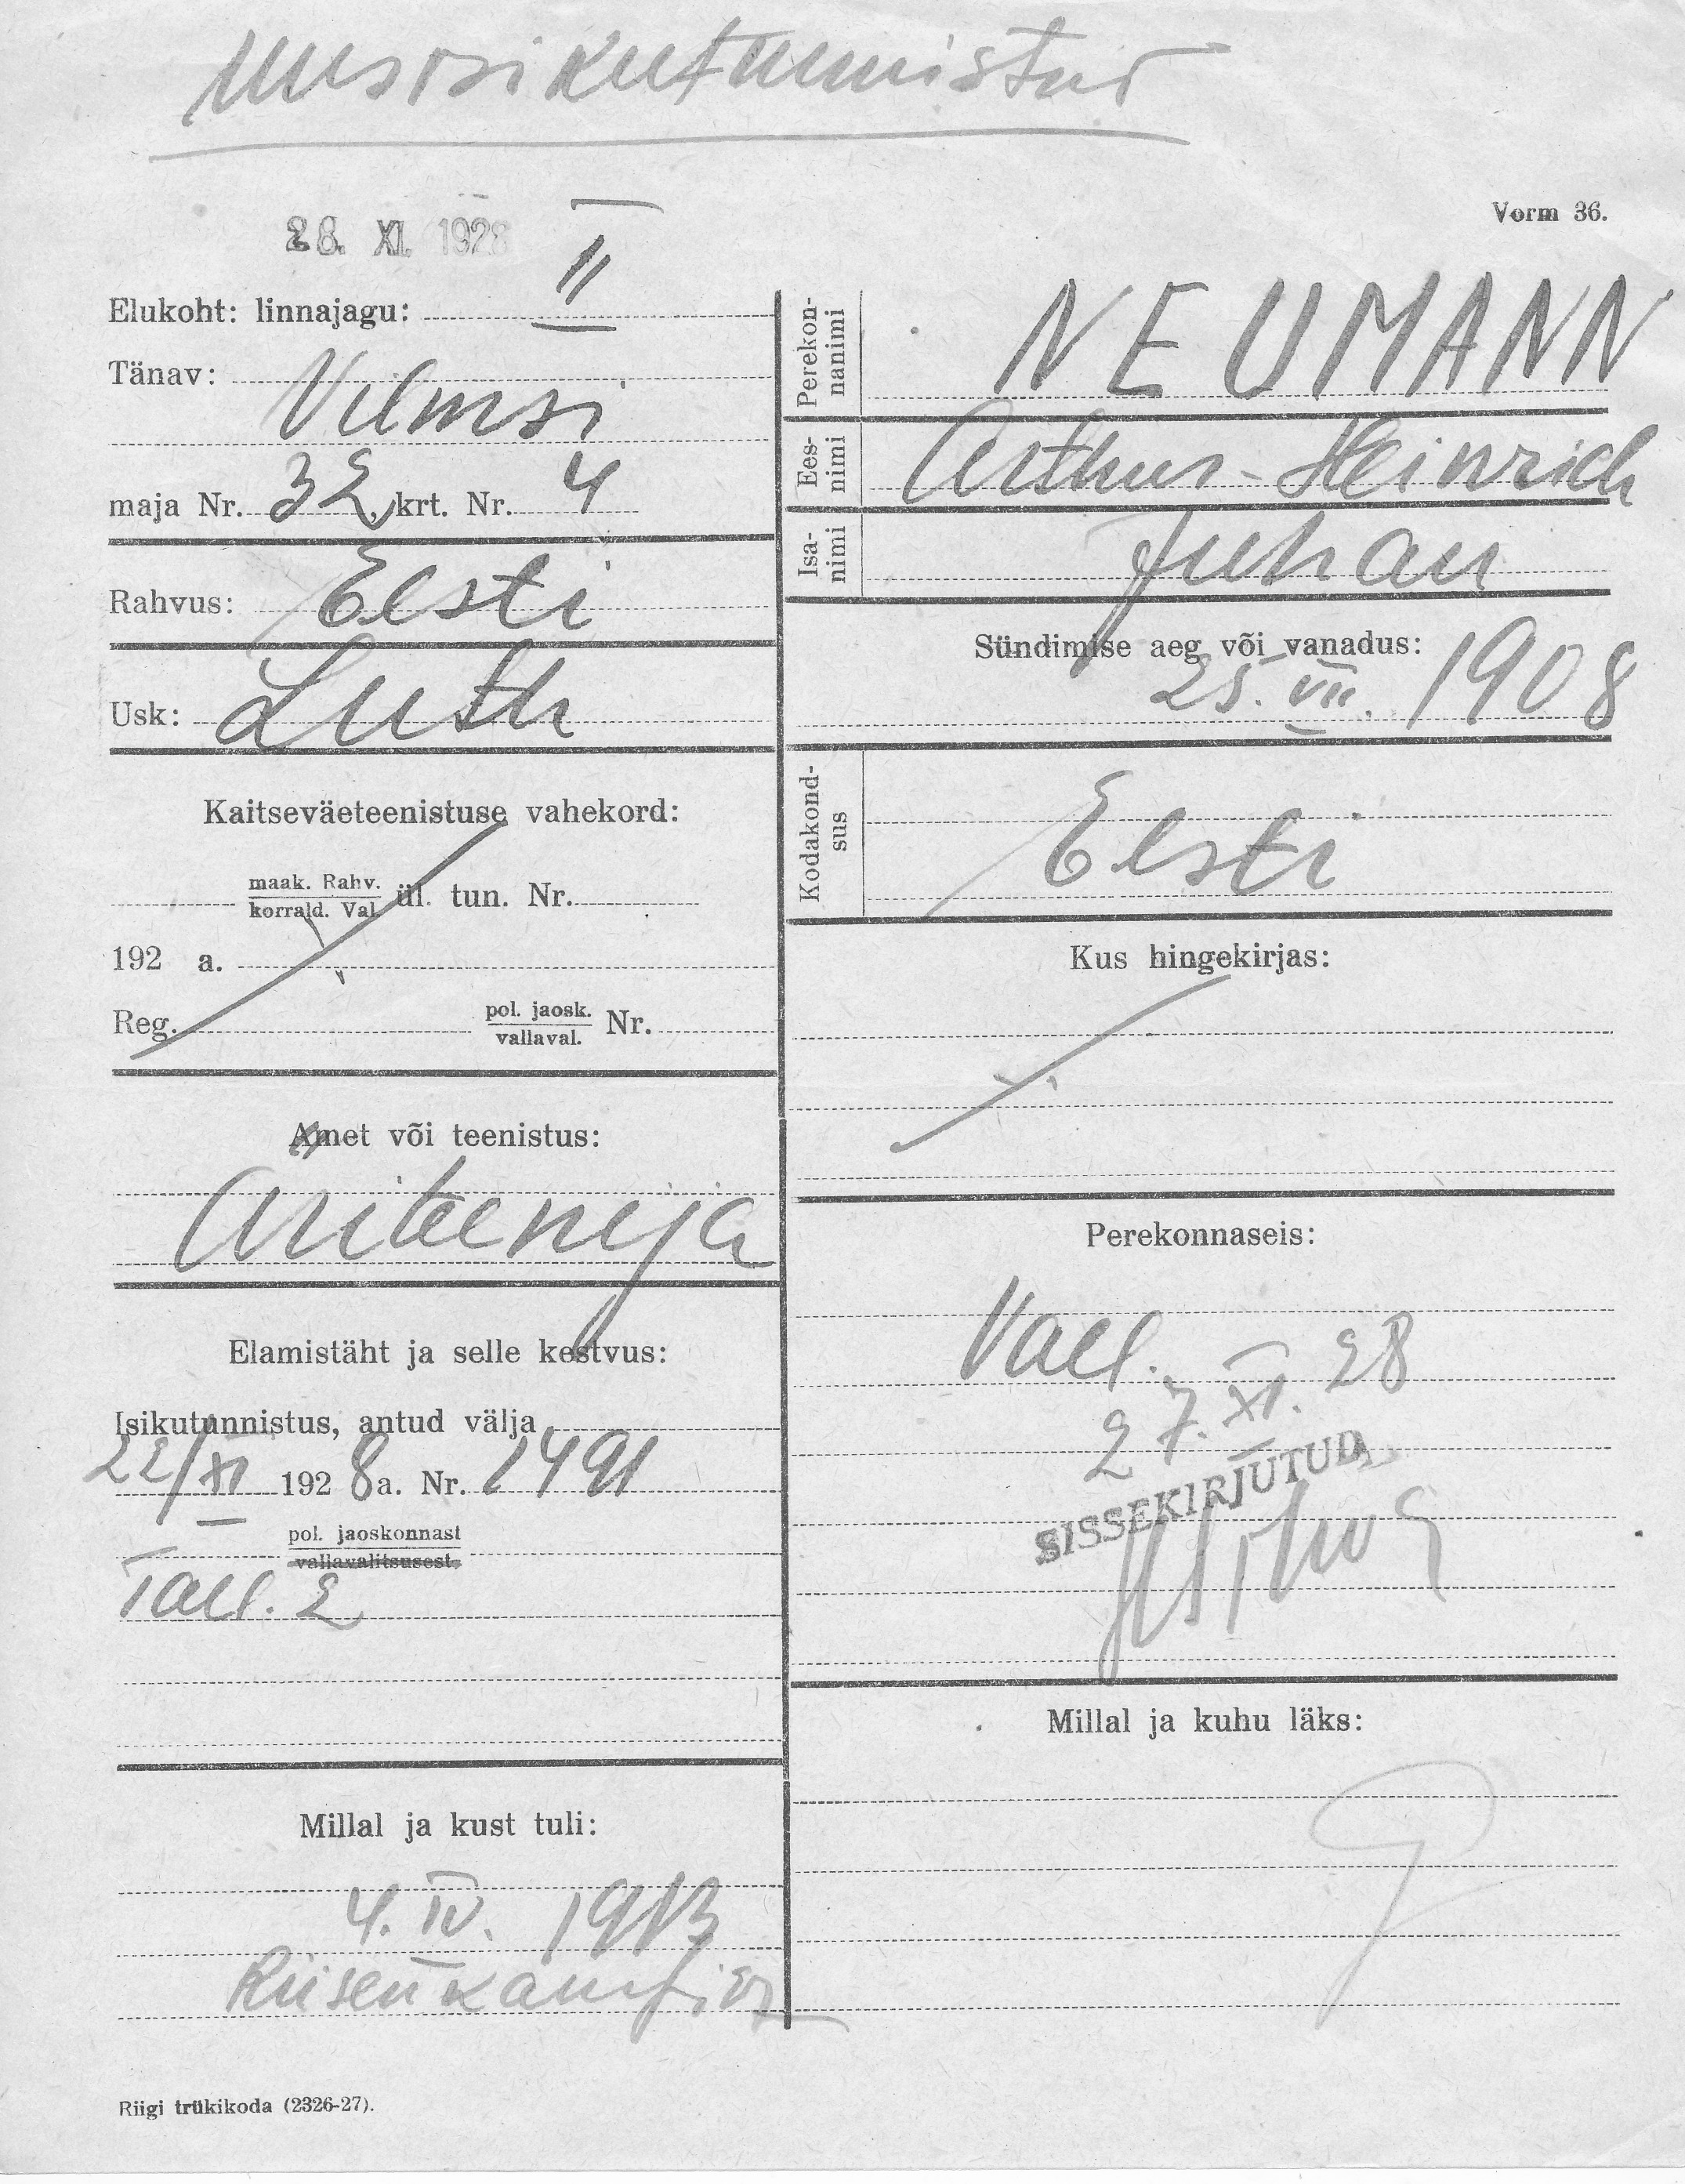 Uus isikutunnistus
28. XI. 1928
Vorm 36.
Elukoht: linnajagu: II
Tänav: Vilmsi
maja Nr. 32, krt. Nr. 4
Rahvus: Eesti
Usk: Luth
Kaitseväeteenistuse vahekord:
maak. Rahv.
korrald. Val. ül. tun. Nr.
192 a.
Reg. pol. jaosk.
vallaval. Nr.
Amet või teenistus:
Äriteenija
Elamistäht ja selle kestvus:
Isikutunnistus, antud välja
22/XI 1928 a. Nr. 1491
pol. jaoskonnast
vallavalitsusest
Tall. 2
Millal ja kust tuli:
4. IV. 1913
Riigi trükikoda (2326-27).
Perekon-
nanimi NEUMANN
Ees-
nimi Arthur-Heinrich
Isa-
nimi Juhan
Sündimise aeg või vanadus:
25. VII. 1908
Kodakond-
sus Eesti
Kus hingekirjas:
Perekonnaseis:
Vall.
27. XI. 28
SISSEKIRJUTUD
Millal ja kuhu läks: